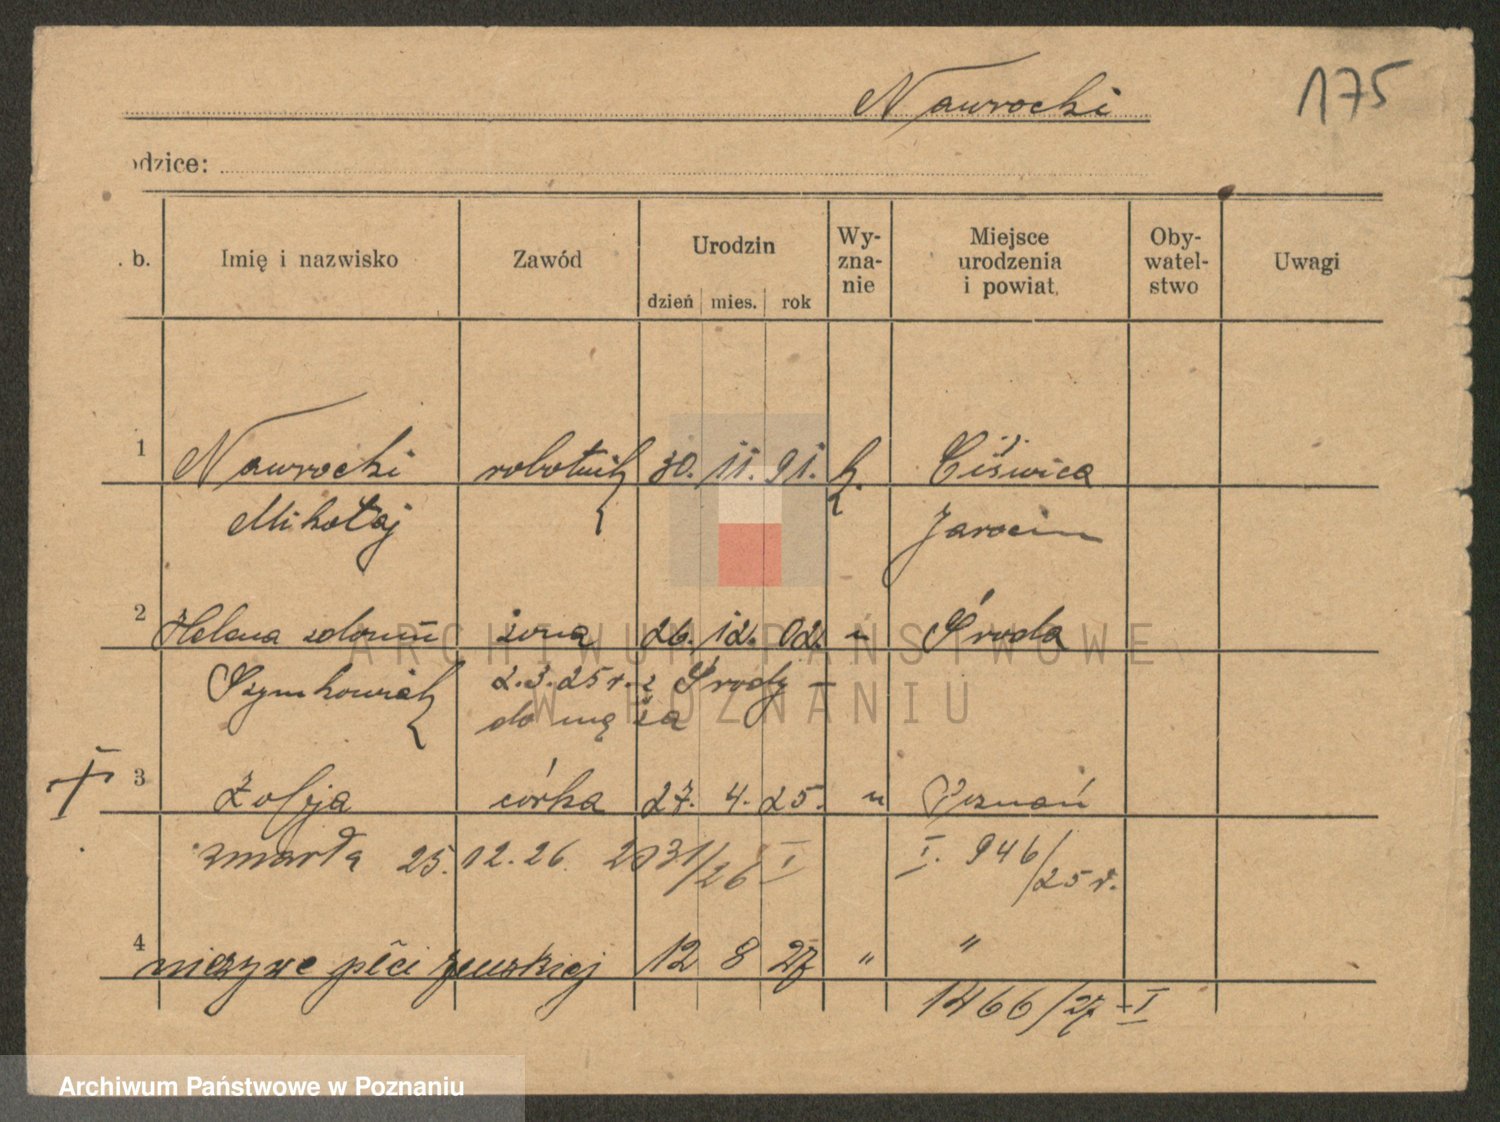 Nawrocki
175
odzice:
. b. Imię i nazwisko Zawód Urodzin Wy-zna-nie Miejsce urodzenia i powiat Oby-watel-stwo Uwagi
dzień mies. rok
1 Nawrocki robotnik 30. 11. 91. k. Ciświca
Mikołaj Jarocin
2 Helena z domu żona 26. 12. 02. " Środa
Szymkowiak 2.3.25 r. z Środy –
do męża
3 Zofja córka 27. 4. 25. " Poznań
zmarła 25.12.26. 2031/26 I I. 946/25 r.
4 nieżywe płci żeńskiej 12 8 27 " "
1466/27 + I
ARCHIWUM PAŃSTWOWE
W POZNANIU
Archiwum Państwowe w Poznaniu